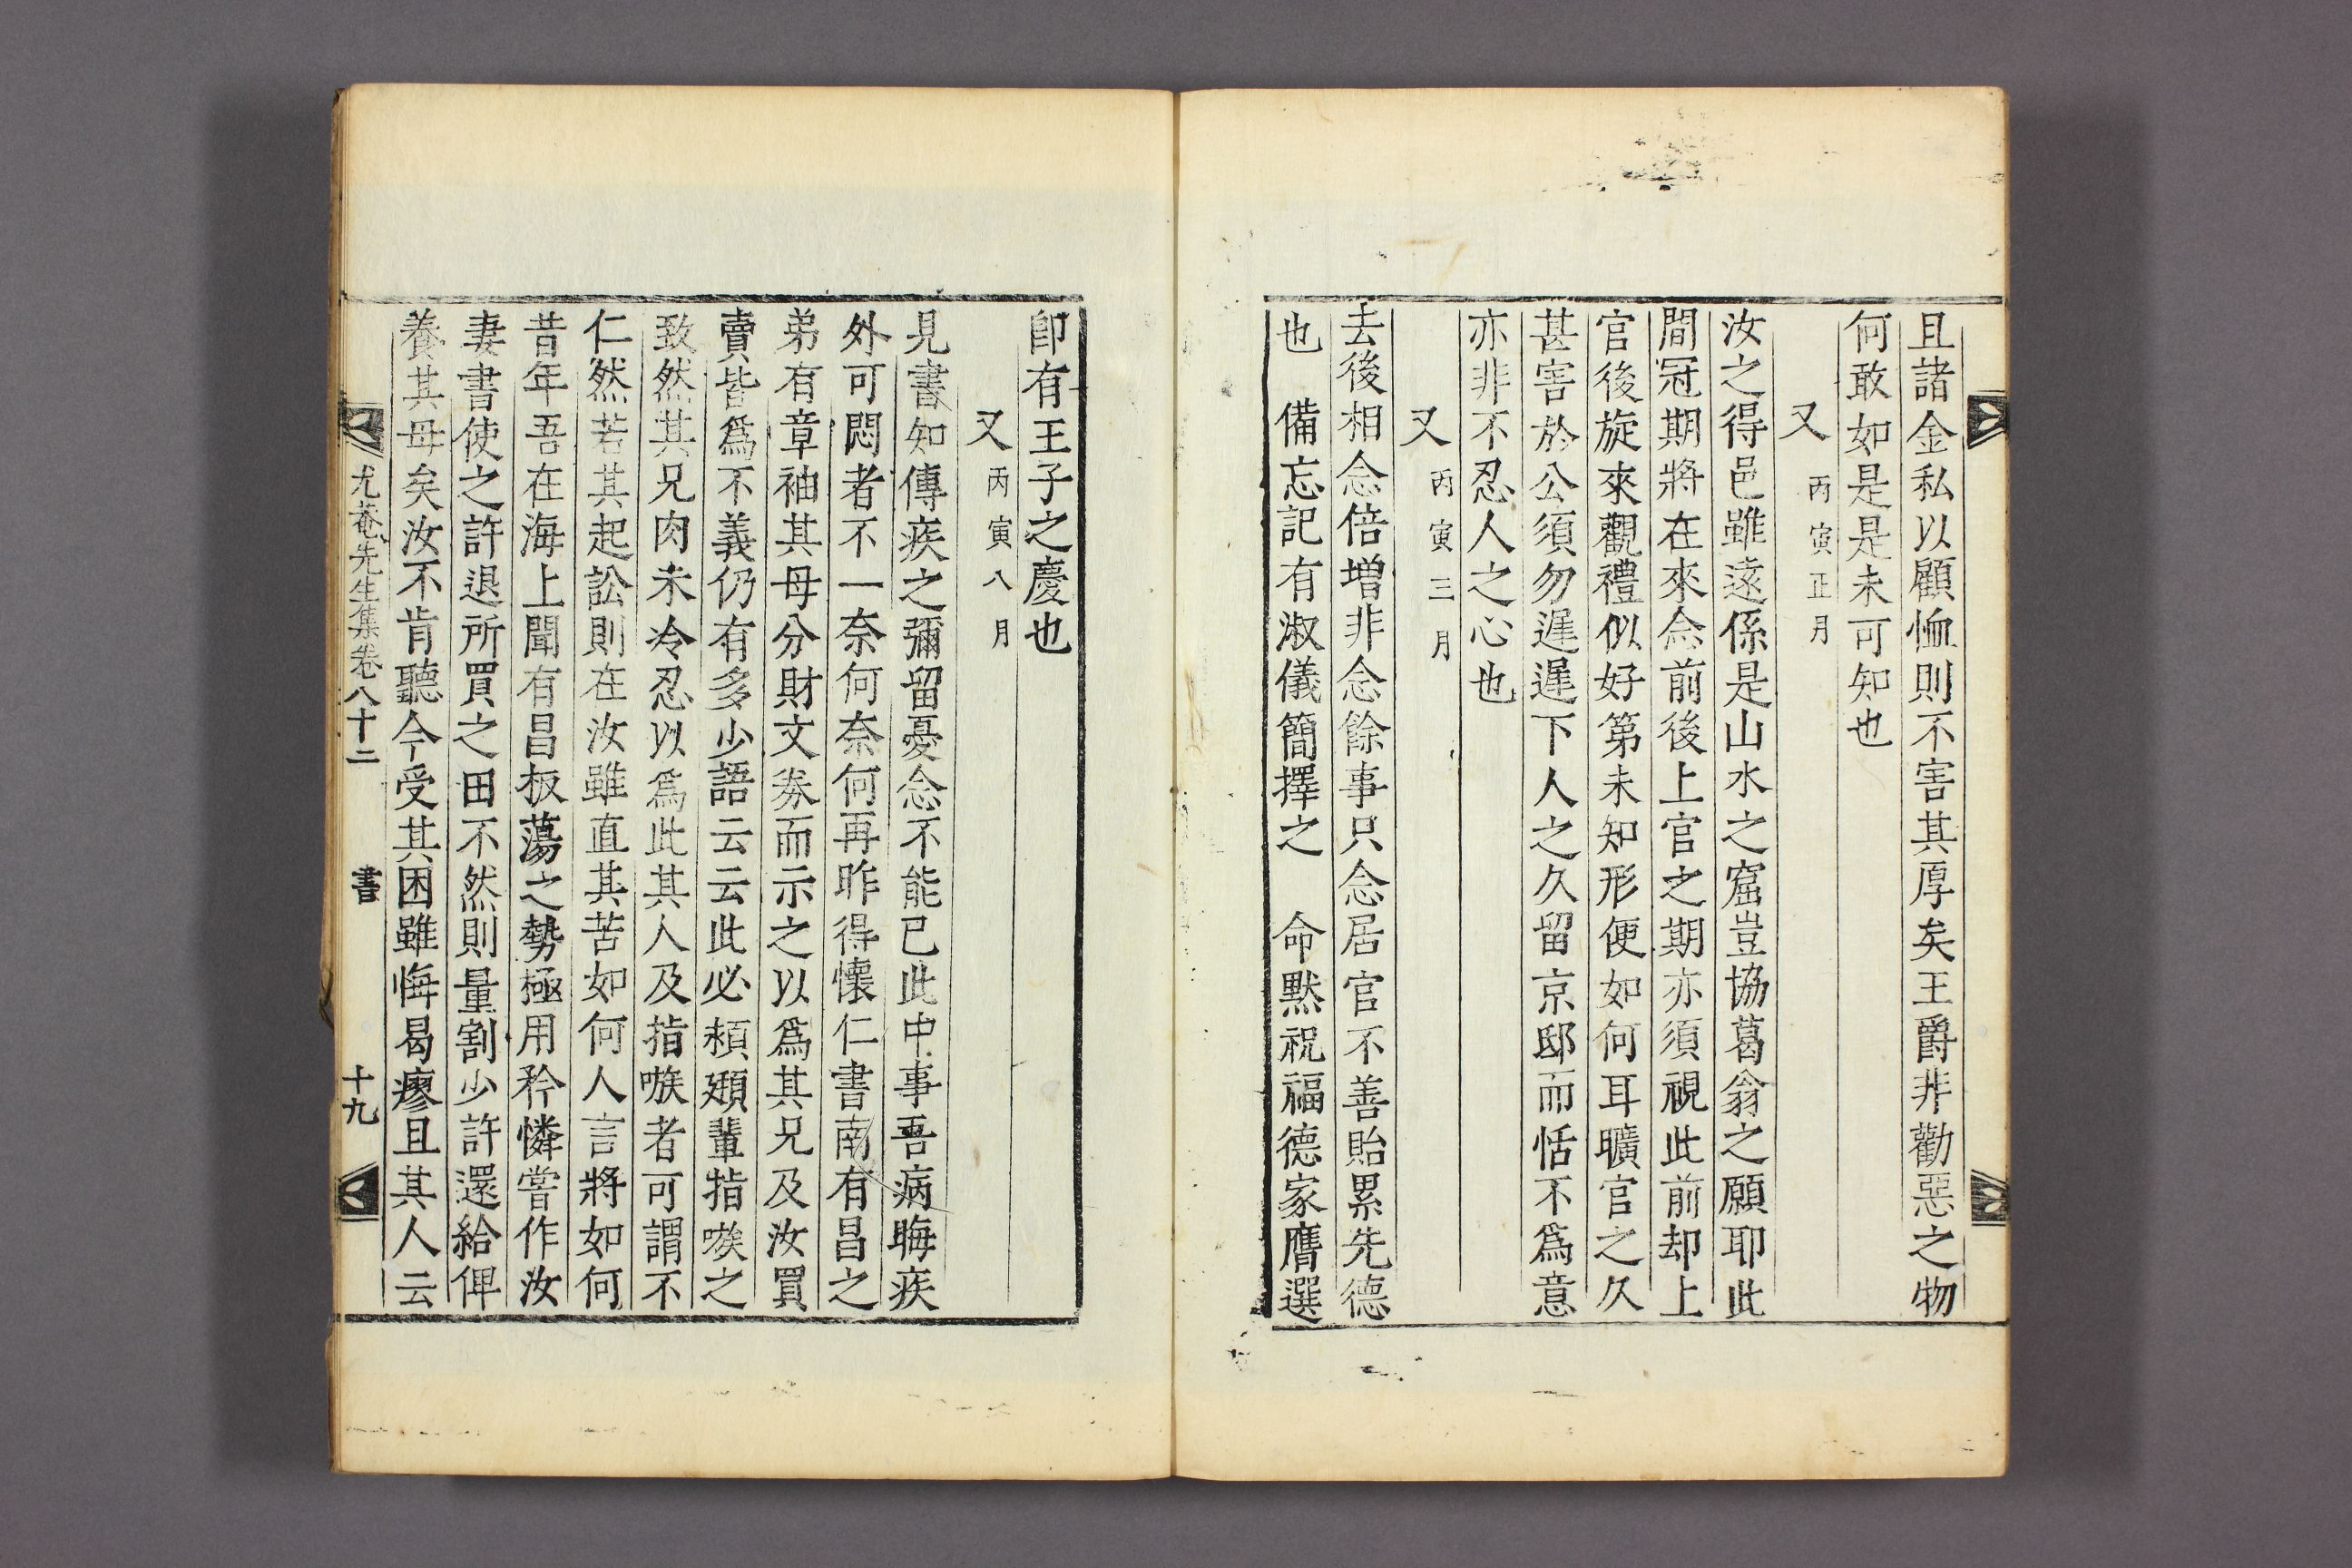 且諸金私以顧恤則不害其厚矣王爵非勸惡之物
何敢如是是未可知也
又 丙寅正月
汝之得邑雖遠係是山水之窟豈協葛翁之願耶此
間冠期將在來念前後上官之期亦須視此前却上
官後旋來觀禮似好第未知形便如何耳曠官之久
甚害於公須勿遲遲下人之久留京邸而恬不爲意
亦非不忍人之心也
又 丙寅三月
去後相念倍增非念餘事只念居官不善貽累先德
也 備忘記有淑儀簡擇之 命默祝福德家膺選
卽有王子之慶也
又 丙寅八月
見書知傳疾之彌留憂念不能已此中事吾病晦疾
外可悶者不一奈何奈何再昨得懷仁書南有昌之
弟有章袖其母分財文券而示之以爲其兄及汝買
賣皆爲不義仍有多少語云云此必頼㒹輩指嗾之
致然其兄肉未冷忍以爲此其人及指嗾者可謂不
仁然若其起訟則在汝雖直其苦如何人言將如何
昔年吾在海上聞有昌板蕩之勢極用矜憐嘗作汝
妻書使之許退所買之田不然則量割少許還給俾
養其母矣汝不肯聽今受其困雖悔曷瘳且其人云
尤菴先生集卷八十二 書 十九